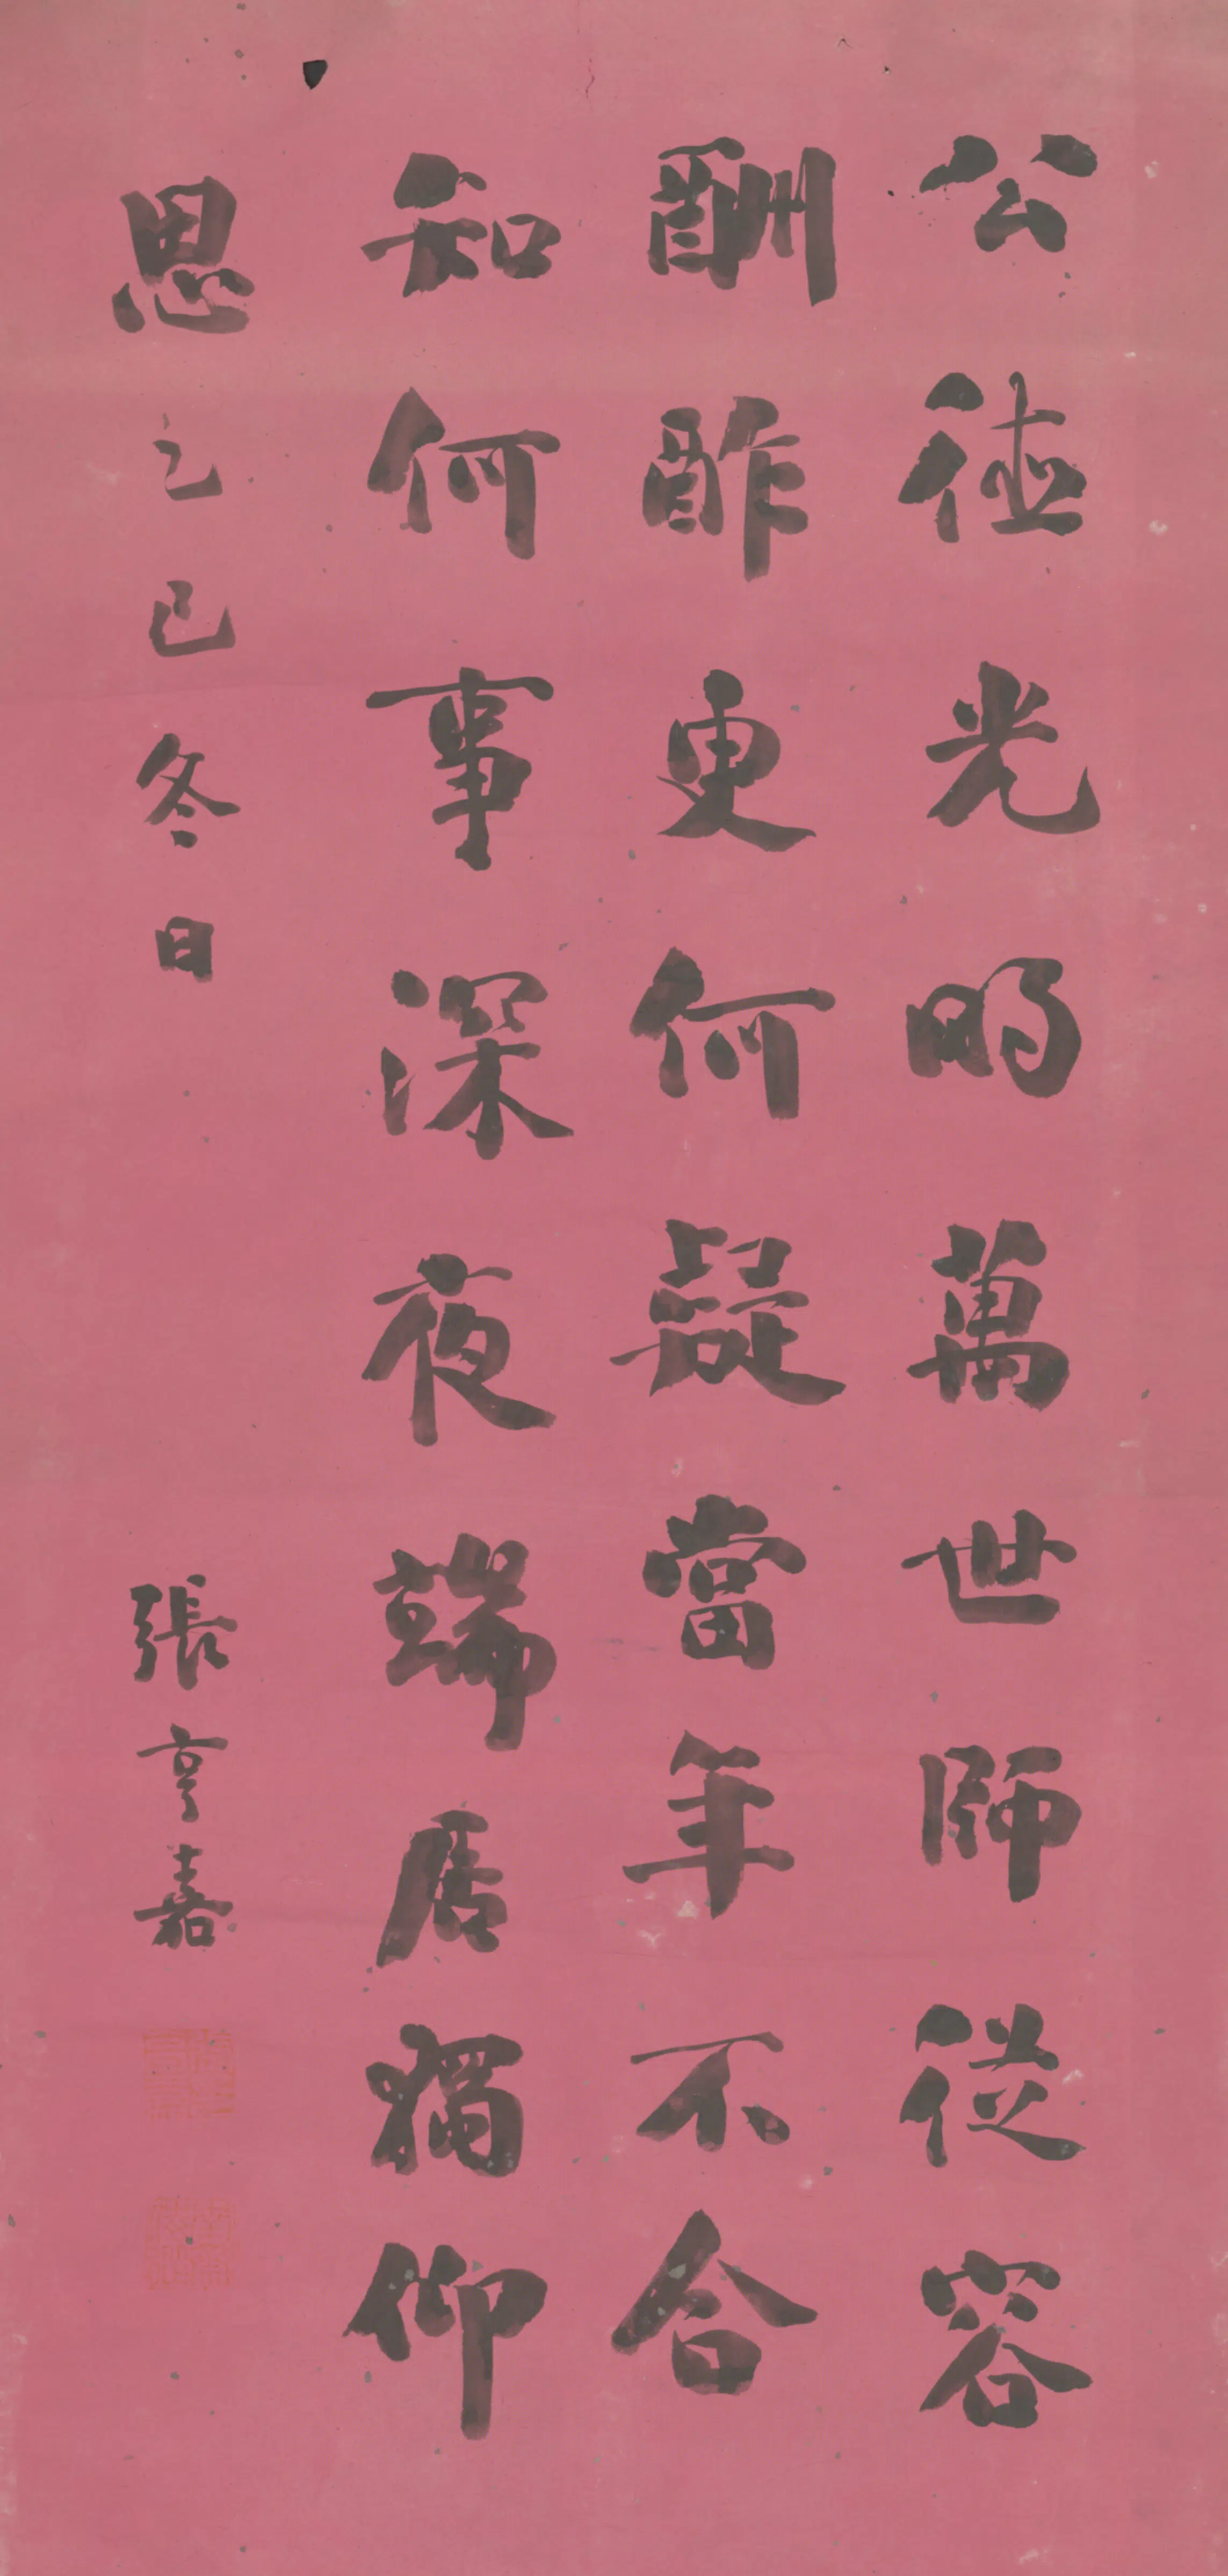 公德光明萬世師從容
酬酢更何疑當年不合
知何事深夜端居獨仰
思
乙巳冬日 張亨嘉